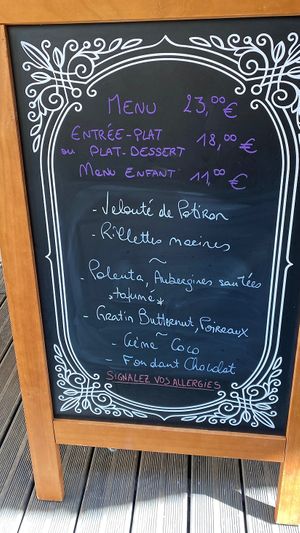 MENU 23,00 €
ENTRÉE-PLAT
ou PLAT-DESSERT 18,00 €
MENU ENFANT 11,00 €
- Velouté de Potiron
- Rillettes marines
~
- Polenta, Aubergines sautées
*tofumé*
- Gratin Butternut, Poireaux
~
- Crème Coco
- Fondant Chocolat
SIGNALEZ VOS ALLERGIES